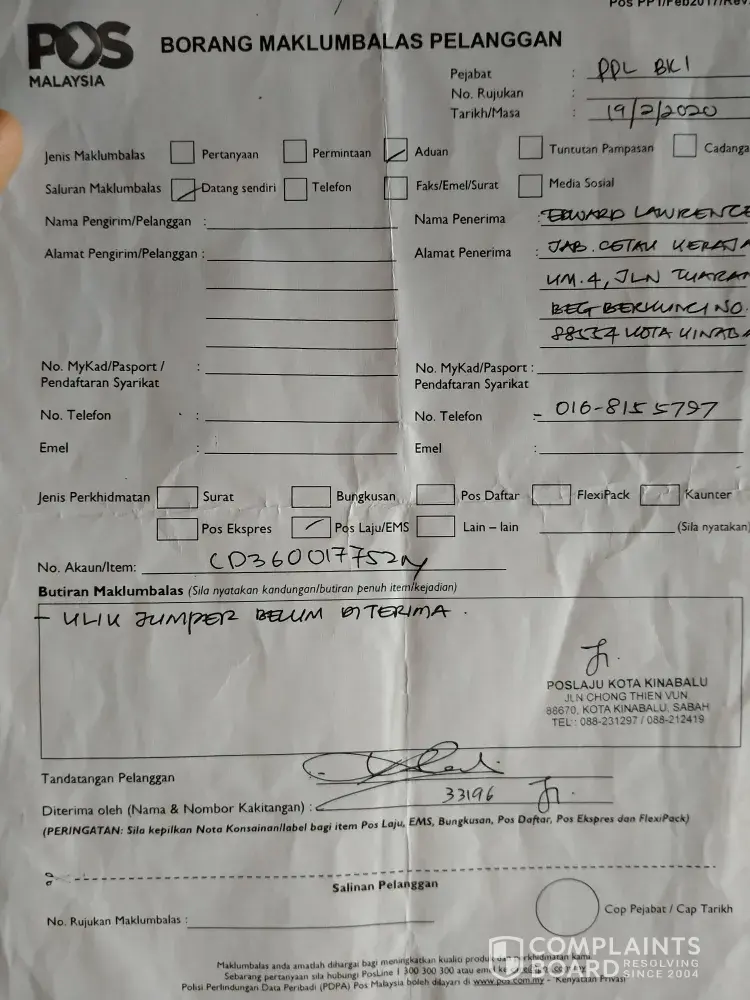 Pos PP1/Feb2017/Rev
POS
MALAYSIA
BORANG MAKLUMBALAS PELANGGAN
Pejabat : PPL BKI
No. Rujukan :
Tarikh/Masa : 19/2/2020
Jenis Maklumbalas Pertanyaan Permintaan Aduan Tuntutan Pampasan Cadanga
Saluran Maklumbalas Datang sendiri Telefon Faks/Emel/Surat Media Sosial
Nama Pengirim/Pelanggan : Nama Penerima : EDWARD LAWRENCE
Alamat Pengirim/Pelanggan : Alamat Penerima : JAB. CETAK KERAJA
KM. 4, JLN TUARAN
BEG BERKUNCI NO.
88554 KOTA KINABA
No. MyKad/Pasport / : No. MyKad/Pasport :
Pendaftaran Syarikat Pendaftaran Syarikat
No. Telefon : No. Telefon - 016-8155797
Emel : Emel :
Jenis Perkhidmatan Surat Bungkusan Pos Daftar FlexiPack Kaunter
Pos Ekspres Pos Laju/EMS Lain – lain (Sila nyatakan)
No. Akaun/Item: CD360017752MY
Butiran Maklumbalas (Sila nyatakan kandungan/butiran penuh item/kejadian)
- KLIK JUMPER BELUM DITERIMA.
POSLAJU KOTA KINABALU
JLN CHONG THIEN VUN
88670, KOTA KINABALU, SABAH
TEL : 088-231297 / 088-212419
Tandatangan Pelanggan
Diterima oleh (Nama & Nombor Kakitangan) : 33196
(PERINGATAN: Sila kepilkan Nota Konsainan/label bagi item Pos Laju, EMS, Bungkusan, Pos Daftar, Pos Ekspres dan FlexiPack)
Salinan Pelanggan
No. Rujukan Maklumbalas : Cop Pejabat / Cap Tarikh
Maklumbalas anda amatlah dihargai bagi meningkatkan kualiti produk dan perkhidmatan kami.
Sebarang pertanyaan sila hubungi PosLine 1 300 300 300 atau emel
Polisi Perlindungan Data Peribadi (PDPA) Pos Malaysia boleh dilayari di www.pos.com.my - 'Kenyataan Privasi'
COMPLAINTS
BOARD RESOLVING SINCE 2004